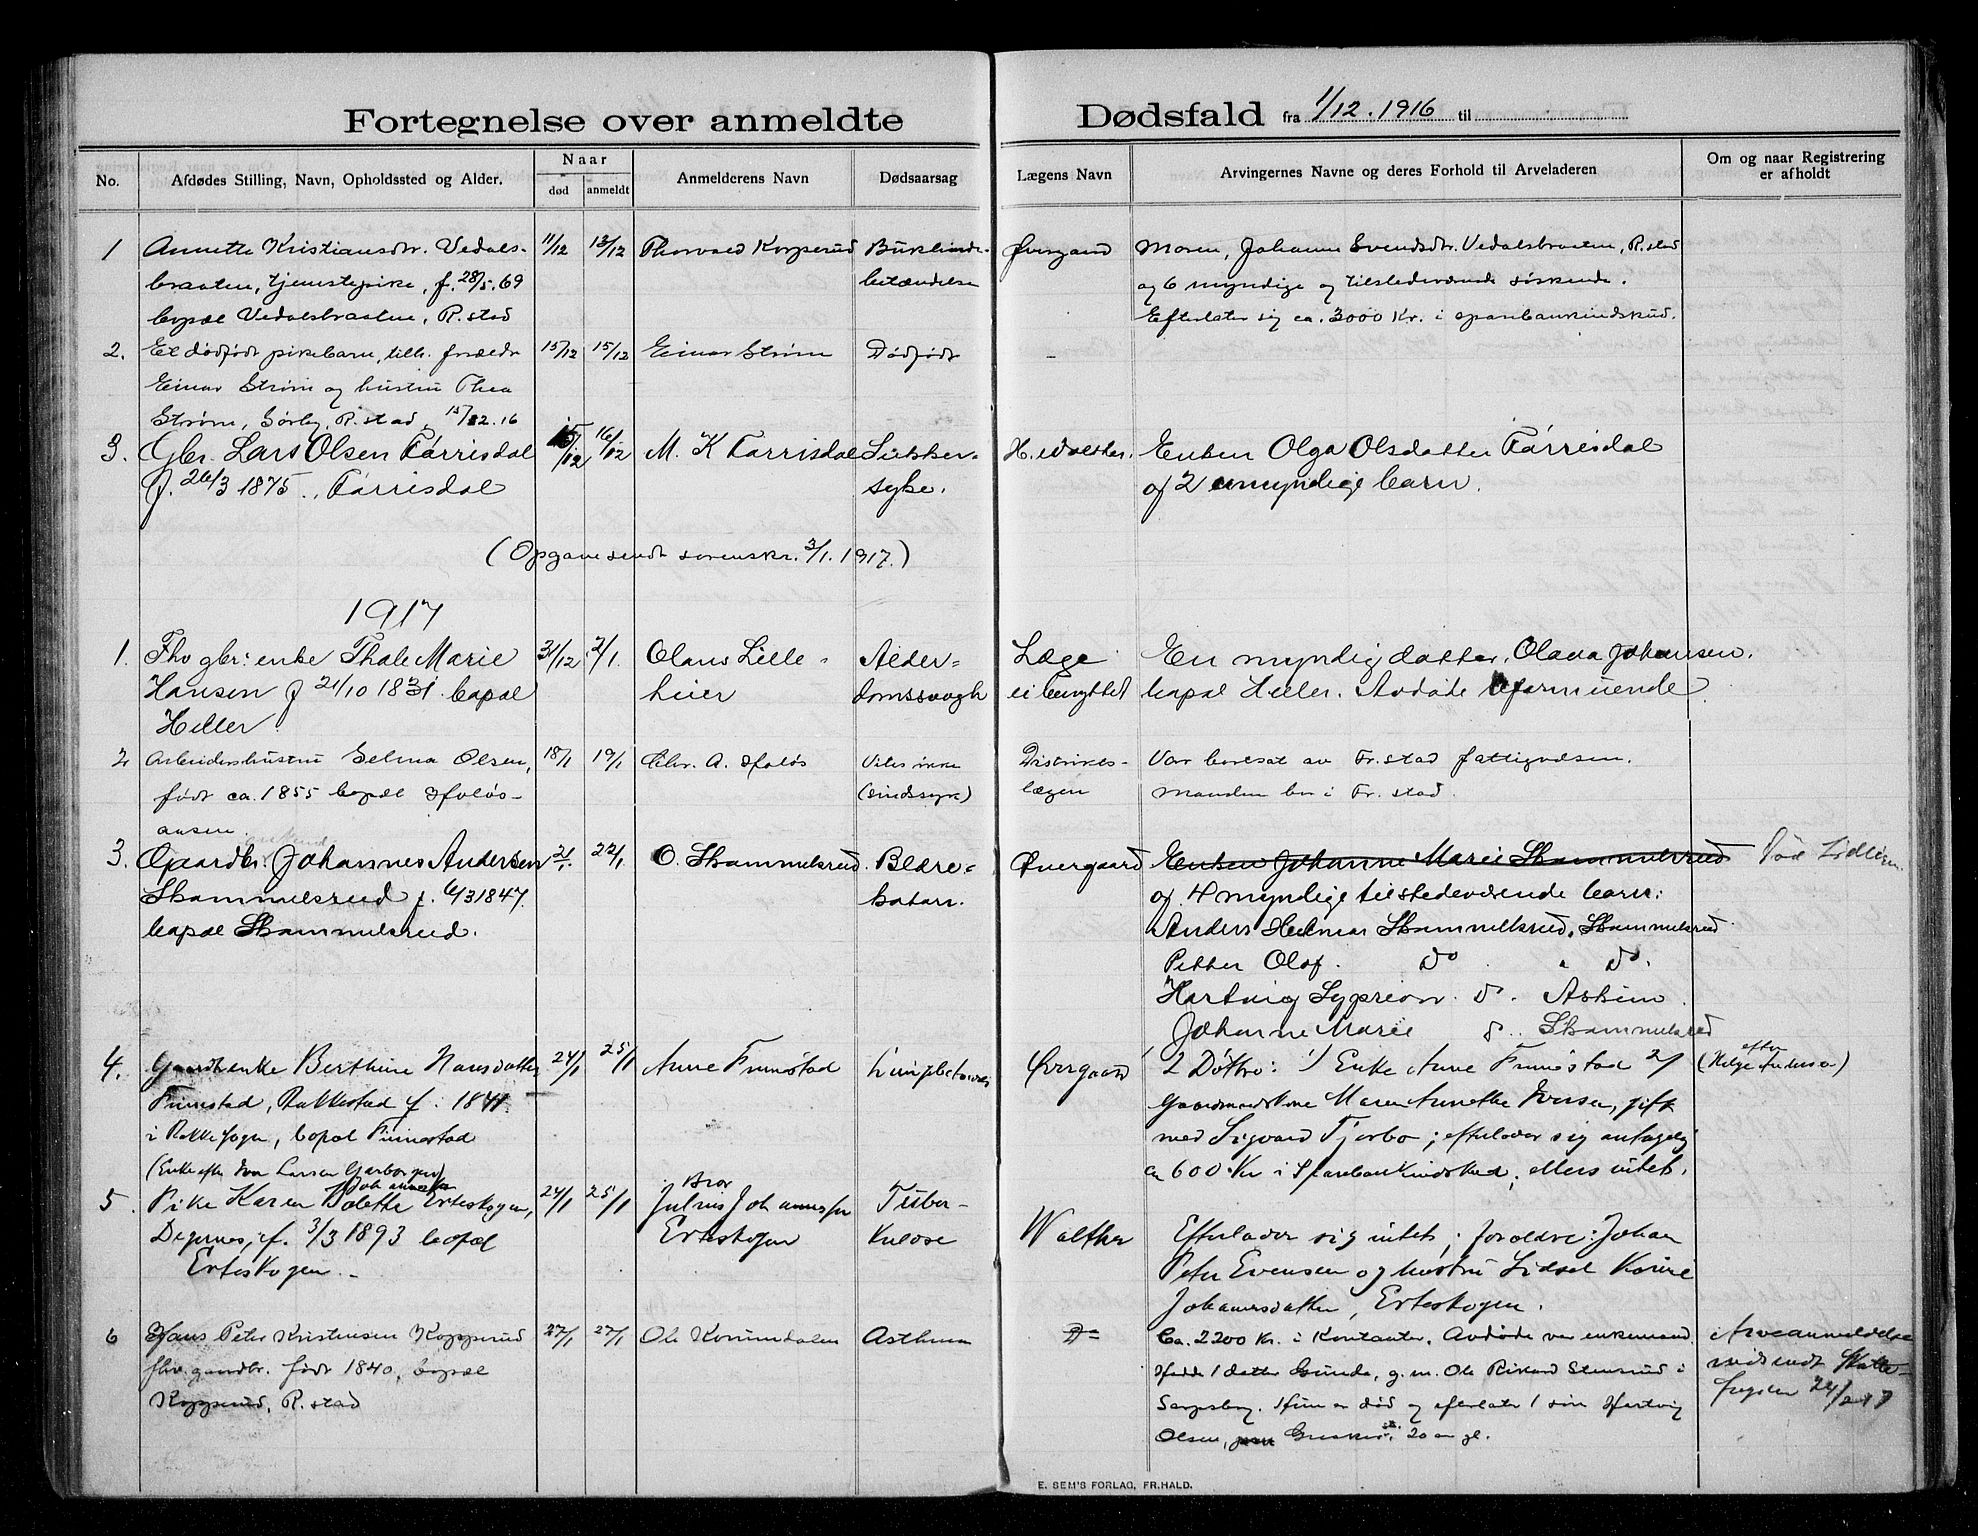 Fortegnelse over anmeldte Dødsfald fra 1/12.1916 til
No.
Afdødes Stilling, Navn, Opholdssted og Alder.
Naar
død
anmeldt
Anmelderens Navn
Dødsaarsag
Lægens Navn
Arvingernes Navne og deres Forhold til Arveladeren
Om og naar Registrering
er afholdt
1 Annette Kristiansdtr. Vedals- 11/12 13/12 Thorvald Kopperud
braaten, tjenstepike, f. 28/5.69 betændelse
bopæl Vedalsbraaten, R.stad
Moren, Johanne Evendsdtr. Vedalsbraaten, R.stad
og 6 myndige og tilstedeværende søskende.
Efterlater sig ca. 3000 Kr. i sparebankindskud.
2. Et dødfødt pikebarn, tilh. 15/12 15/12 Einar Strøm Dødfødt -
Einar Strøm og hustru Thea
Strøm, Sørby, R.stad, 15/12.16
3. Gbr. Lars Olsen Tårrisdal 15/12 16/12 M. K Tarrisdal Sukker-
f. 26/3 1875., Tårrisdal syke.
H. Walther. Enken Olga Olsdatter Tårrisdal
og 2 umyndige barn.
(Opgave sendt sorenskr. 3/1.1917.)
1917
1. Fhv gbr: enke Thale Marie 31/12 2/1. Olaus Lille- Alder-
Hansen f 21/10 1831. bopæl heier domssvagh
Heller.
Læge En myndig datter, Olava Johansen.
ei benyttet bopæl Heller. Avdøde uformuende
2 Arbeiderhustru Selma Olsen, 18/1 19/1 Chr. A. Holøs Vites ikke
født ca. 1855 bopæl Holøs- (sindssyk)
aasen.
Distrikts- Var bortsat av Fr.stad fattigvæsen.
lægen Manden bor i Fr.stad.
3. Gaardbr. Johannes Andersen 21/1. 22/1 O. Skammelsrud. Blære-
Skammelsrud f. 6/3 1847. katarr.
bopæl Skammelsrud.
Øvergaard Enken Johanne Marie Skammelsrud
og 4 myndige tilstedeværende barn:
Anders Helmer Skammelsrud, Skammelsrud
Petter Olof. Do. " Do.
Hartvig Syprian. do. Askim.
Johanne Marie do. Skammelsrud
4. Gaardbr enke Berthine Hansdatter 24/1 25/1 Anne Finnestad
Finnestad, Rakkestad f. 1841
i Rakkesogn, bopæl Finnestad
(Enke efter Iver Larsen
Øvergaard 2 Døttre: 1) Enke Anne Finnestad 2) (efter Helge Andersen)
Gaardmandskone Maren Annette Iversen, gift
med Sigvard Tjerbo; efterlader sig antagelig
ca 600 Kr i Sparebankindskud, ellers intet.
5. Pike Karen Bolette Johannesen Erteskogen, 24/1 25/1 Bror Julius Johannessen Tuber-
Degernes, f. 3/3 1893 bopæl Erteskogen kulose
Erteskogen.
Walther Efterlader sig intet; foreldre: Johan
Peter Evensen og hustru Karine
Johannesdatter, Erteskogen.
6 Hans Peter Kristensen Kopperud 27/1 27/1 Ole Korumdalen Asthma
fhv. gaardbr. født 1840, bopæl
Kopperud, R.stad
Do Ca. 2200 Kr. i Kontanter. Avdøde var enkemand.
Hadde 1 datter Gunda, g.m. Ole Rikard Stensrud i
Sarpsborg. Hun er død og efterlater 1 søn Hartvig
Olsen, 20 aar gl.
Arveanmeldelse
indsendt Skatte-
fogden 24/2 17
E. SEM'S FORLAG, FR.HALD.